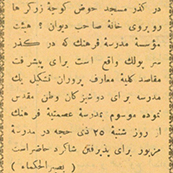 در گذر مسجد حوض کوچهٔ زرگرها
روبروی خانهٔ صاحب دیوان ؟ هیئت
مؤسسهٔ مدرسهٔ فرهنگ که در گذر
سر پولك واقع است برای پیشرفت
مقاصد کلیهٔ معارف پروران تشکیل یك
مدرسه برای دوشیزگان وطن مقدس
نموده موسوم بمدرسهٔ عصمتیهٔ فرهنگ
از روز شنبهٔ ۲۵ ذی حجه در مدرسهٔ
مزبور برای پذیرفتن شاگرد حاضر است
( بصیر الحکماء )